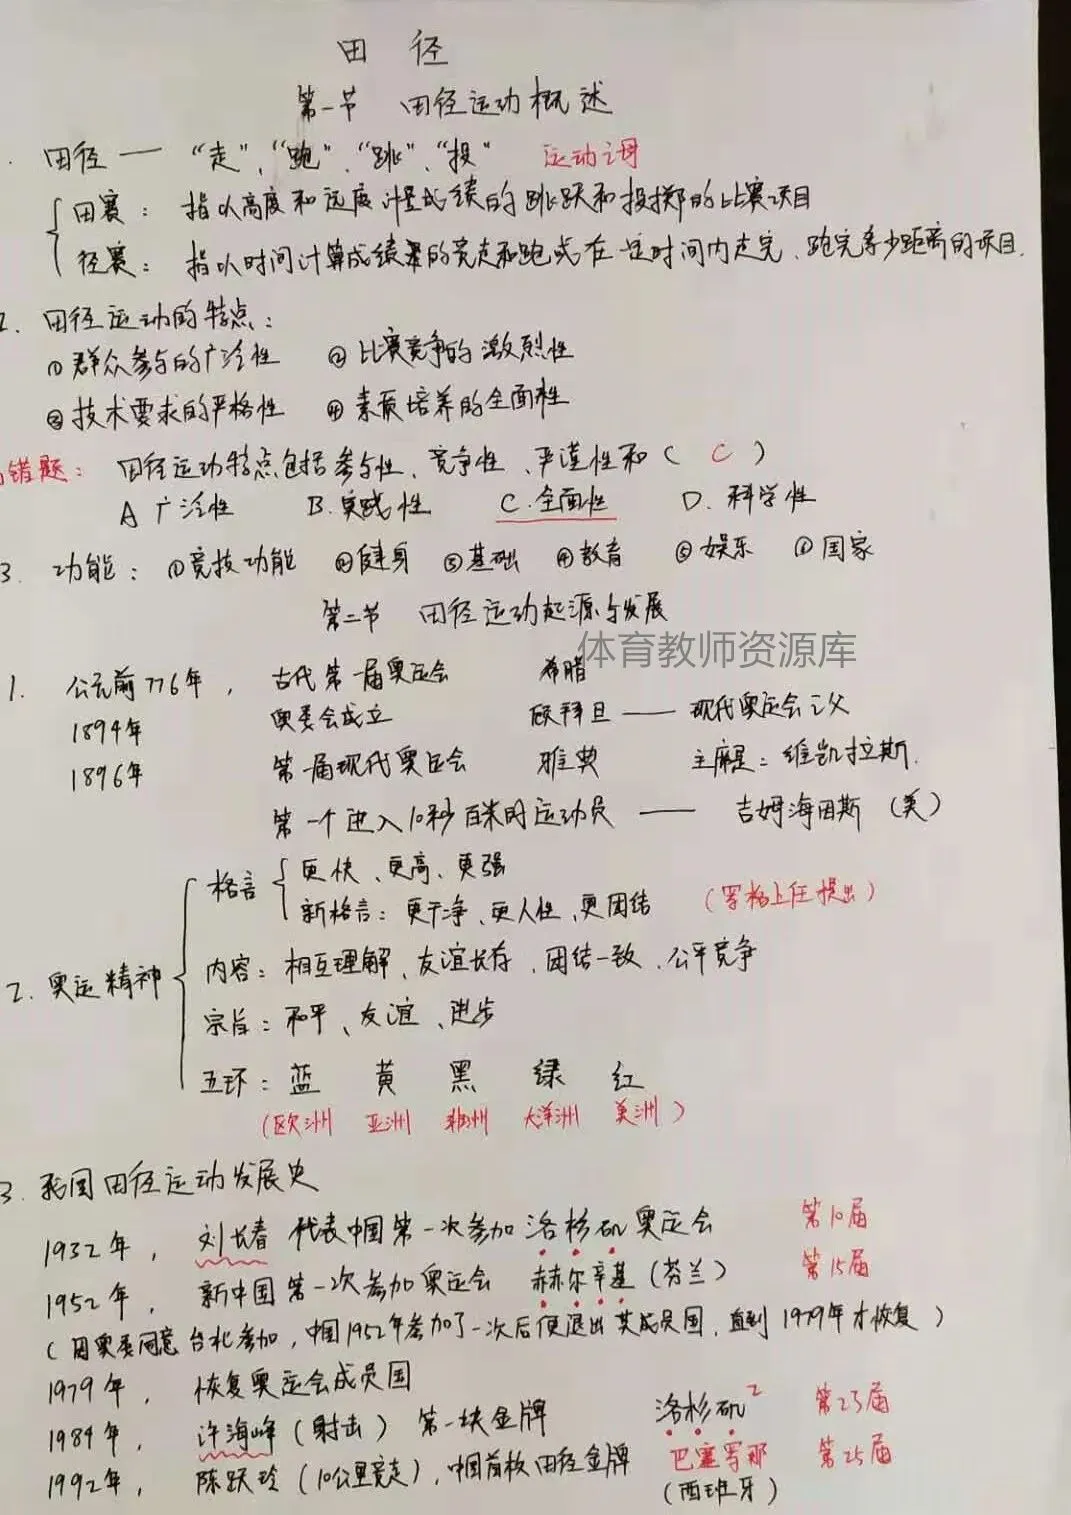 田 径
第一节 田径运动概述
田径 — “走”、“跑”、“跳”、“投” 运动之母
田赛: 指以高度和远度计量成绩的跳跃和投掷的比赛项目
径赛: 指以时间计算成绩的竞走和跑或在一定时间内走完、跑完多少距离的项目.
2. 田径运动的特点:
①群众参与的广泛性 ②比赛竞争的激烈性
③技术要求的严格性 ④素质培养的全面性
错题: 田径运动特点包括参与性、竞争性、严谨性和( C )
A 广泛性 B.实践性 C.全面性 D.科学性
3. 功能: ①竞技功能 ②健身 ③基础 ④教育 ⑤娱乐 ⑥国家
第二节 田径运动起源与发展
体育教师资源库
1. 公元前776年, 古代第一届奥运会 希腊
1894年 奥委会成立 顾拜旦 —— 现代奥运会之父
1896年 第一届现代奥运会 雅典 主席是: 维凯拉斯.
第一个进入10秒百米的运动员 —— 吉姆海因斯 (美)
格言 更快、更高、更强
新格言: 更干净、更人性、更团结 (罗格上任提出)
2. 奥运精神 内容: 相互理解、友谊长存、团结一致、公平竞争
宗旨: 和平、友谊、进步
五环: 蓝 黄 黑 绿 红
(欧洲 亚洲 非洲 大洋洲 美洲)
3. 我国田径运动发展史
1932年, 刘长春 代表中国第一次参加洛杉矶奥运会 第10届
1952年, 新中国第一次参加奥运会 赫尔辛基(芬兰) 第15届
(因奥委同意台北参加, 中国1952年参加了一次后便退出其成员国, 直到1979年才恢复)
1979年, 恢复奥运会成员国
1984年, 许海峰(射击) 第一块金牌 洛杉矶2 第23届
1992年, 陈跃玲(10公里竞走), 中国首枚田径金牌 巴塞罗那 第25届
(西班牙)